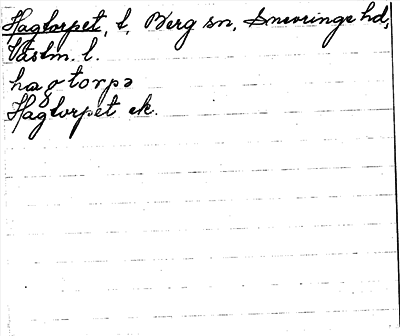 Hagtorpet, t, Berg sn, Snevringe hd,
Västm. l.
hagtorpə
Hagtorpet ek.